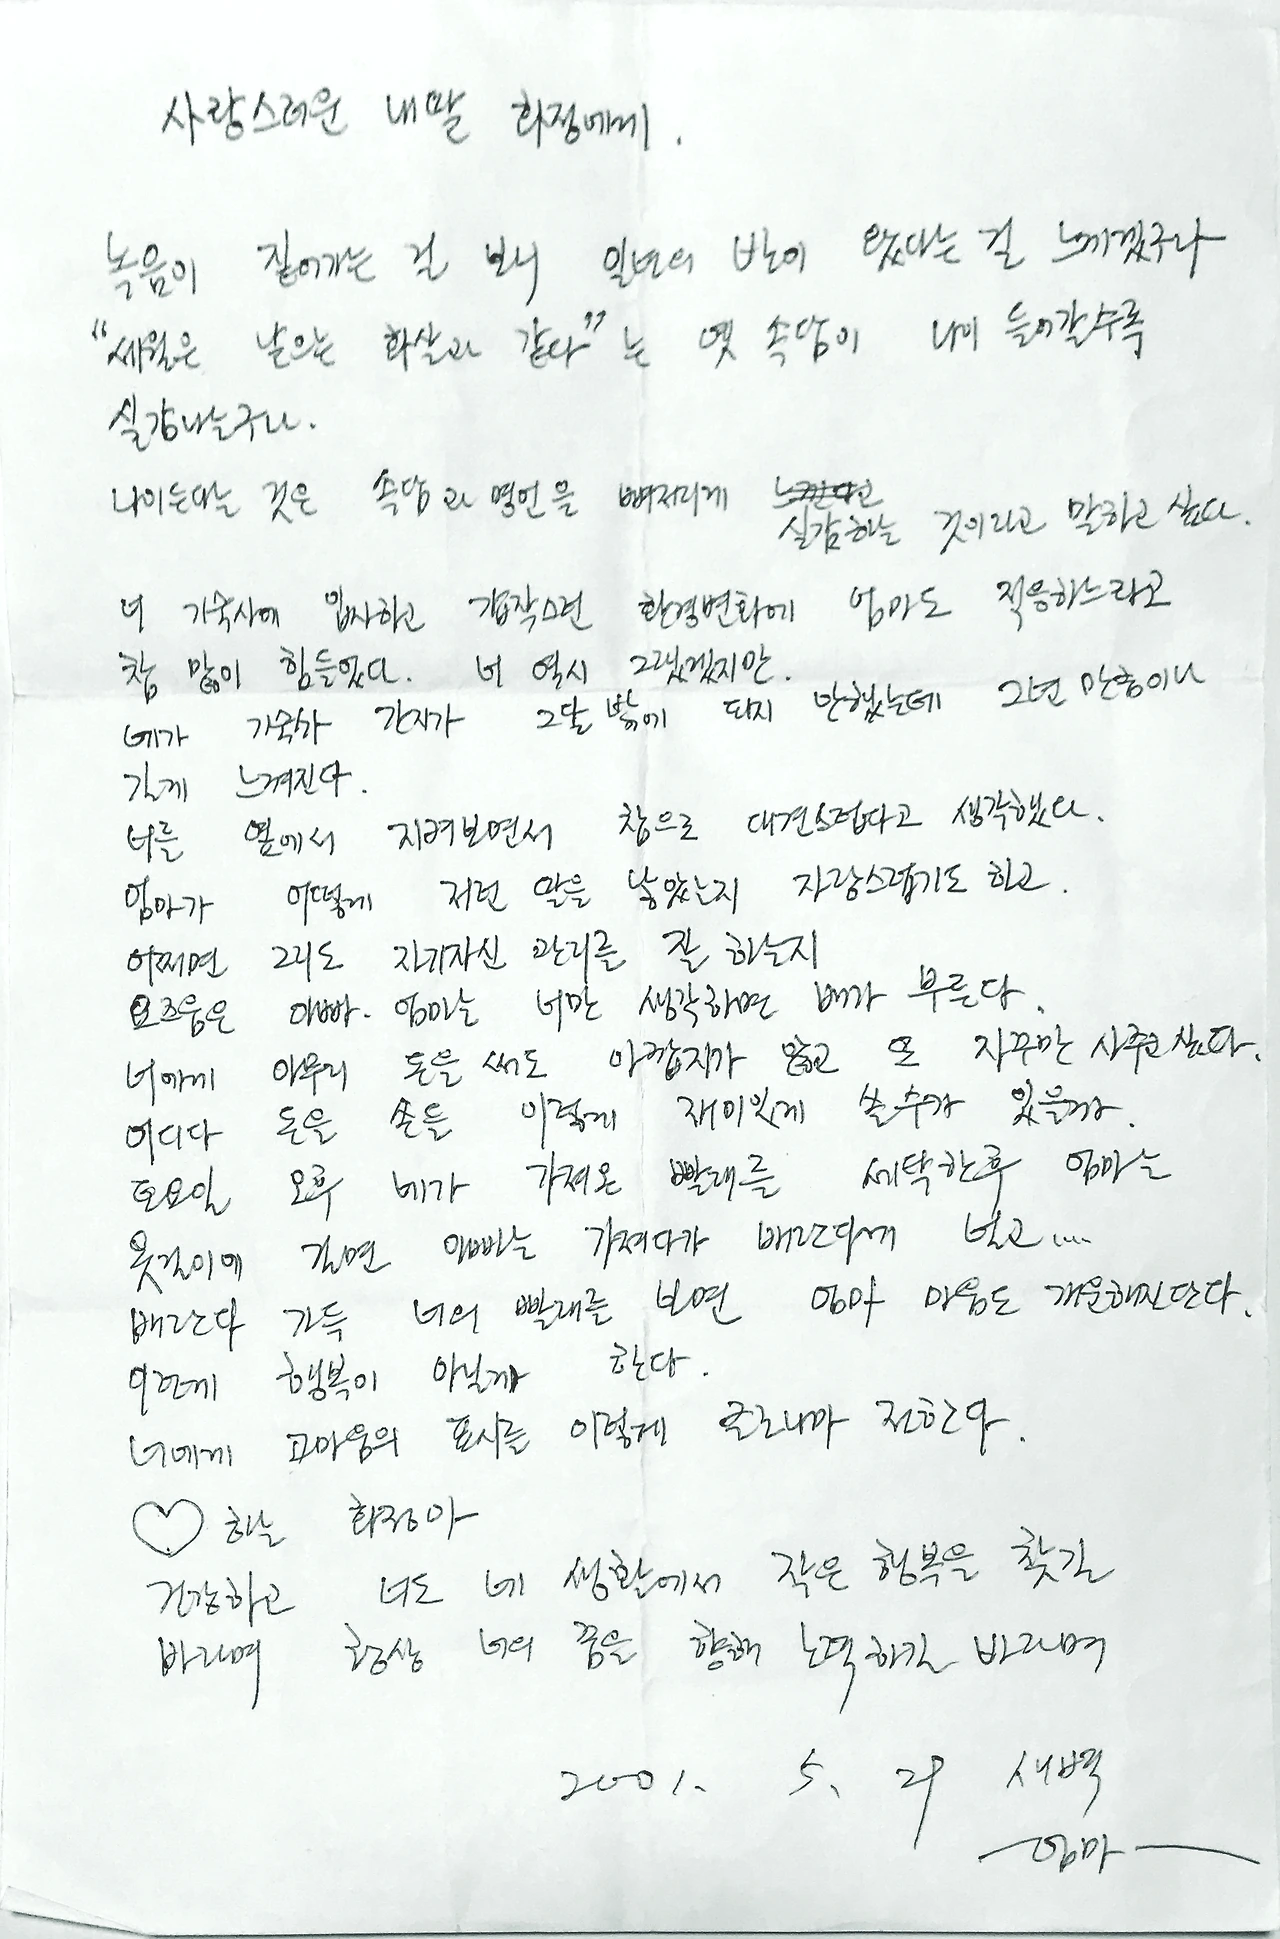 사랑스러운 내딸 화정에게.
녹음이 짙어가는 걸 보니 일년의 반이 왔다는 걸 느끼겠구나
"세월은 날으는 화살과 같다"는 옛 속담이 나이 들어갈수록
실감나는구나.
나이든다는 것은 속담과 명언을 뼈저리게
실감하는 것이라고 말하고 싶다.
너 기숙사에 입사하고 갑작스런 환경변화에 엄마도 적응하느라고
참 많이 힘들었다. 너 역시 그랬겠지만.
네가 기숙사 간지가 그달 밖에 되지 안했는데 그런 만큼이나
길게 느껴진다.
너를 옆에서 지켜보면서 참으로 대견스럽다고 생각했다.
엄마가 어떻게 저런 딸을 낳았는지 자랑스럽기도 하고.
어쩌면 그리도 자기자신 관리를 잘 하는지
요즈음은 아빠. 엄마는 너만 생각하면 배가 부른다.
너에게 아무리 돈을 써도 아깝지가 않고 또 자꾸만 사주고 싶다.
어디다 돈을 쓴들 이렇게 재미있게 쓸수가 있을까.
토요일 오후 네가 가져온 빨래를 세탁한후 엄마는
옷걸이에 걸면 아빠는 가져다가 베란다에 널고....
베란다 가득 너의 빨래를 보면 엄마 마음도 개운해진단다.
이런게 행복이 아닐까 한다.
너에게 고마움의 표시를 이렇게 글로나마 전한다.
♡하는 화정아
건강하고 너도 네 생활에서 작은 행복을 찾길
바라며 항상 너의 꿈을 향해 노력하길 바라며
2001. 5. 29 새벽
엄마